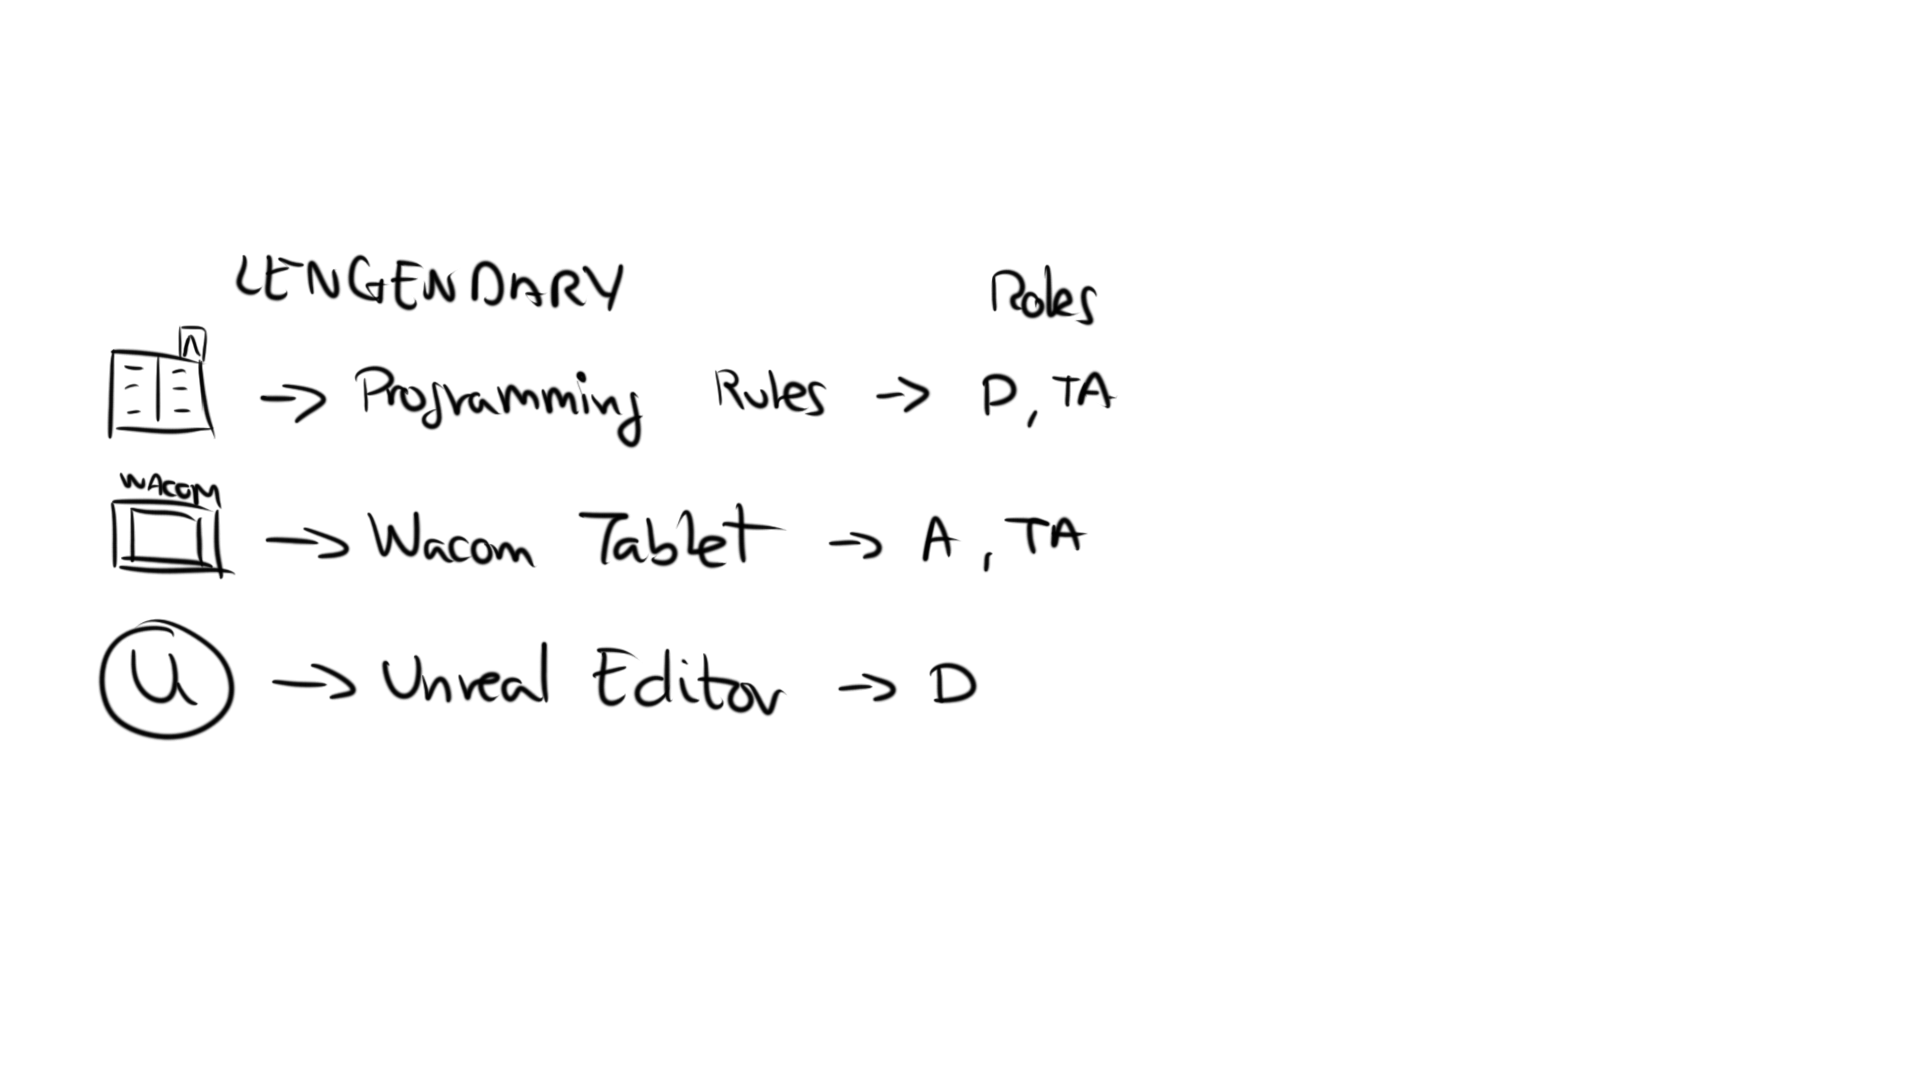 LENGENDARY Roles
Programming Rules → D, TA
WACOM
→ Wacom Tablet → A, TA
U → Unreal Editor → D